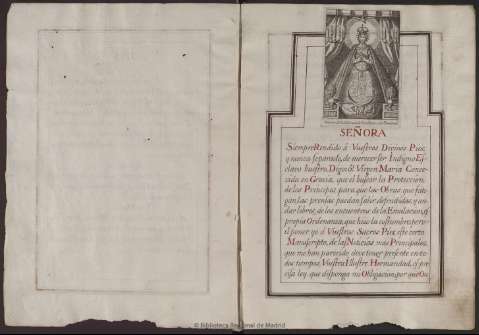 SEÑORA
Siempre Rendido á Vuestros Divinos Pies,
y nunca separado, de merecer ser Indigno Es-
clavo Vuestro, Digo ô Virgen Maria Conce-
vida en Gracia, que el buscar la Proteccion,
de los Principes para que las Obras que fati-
gan las prensas puedan salir defendidas, y an-
dar libres, de los encuentros de la Emulacion, es
propia Ordenanza, que hizo la costumbre; pero
el poner yo â Vuestros Sacros Pies este corto
Manuscripto, de las Noticias mas Principales,
que me han parecido deve tener presente en to-
dos tiempos Vuestra Illustre Hermandad, es pre-
cisa ley que dispone mi Obligacion, por que
© Biblioteca Regional de Madrid